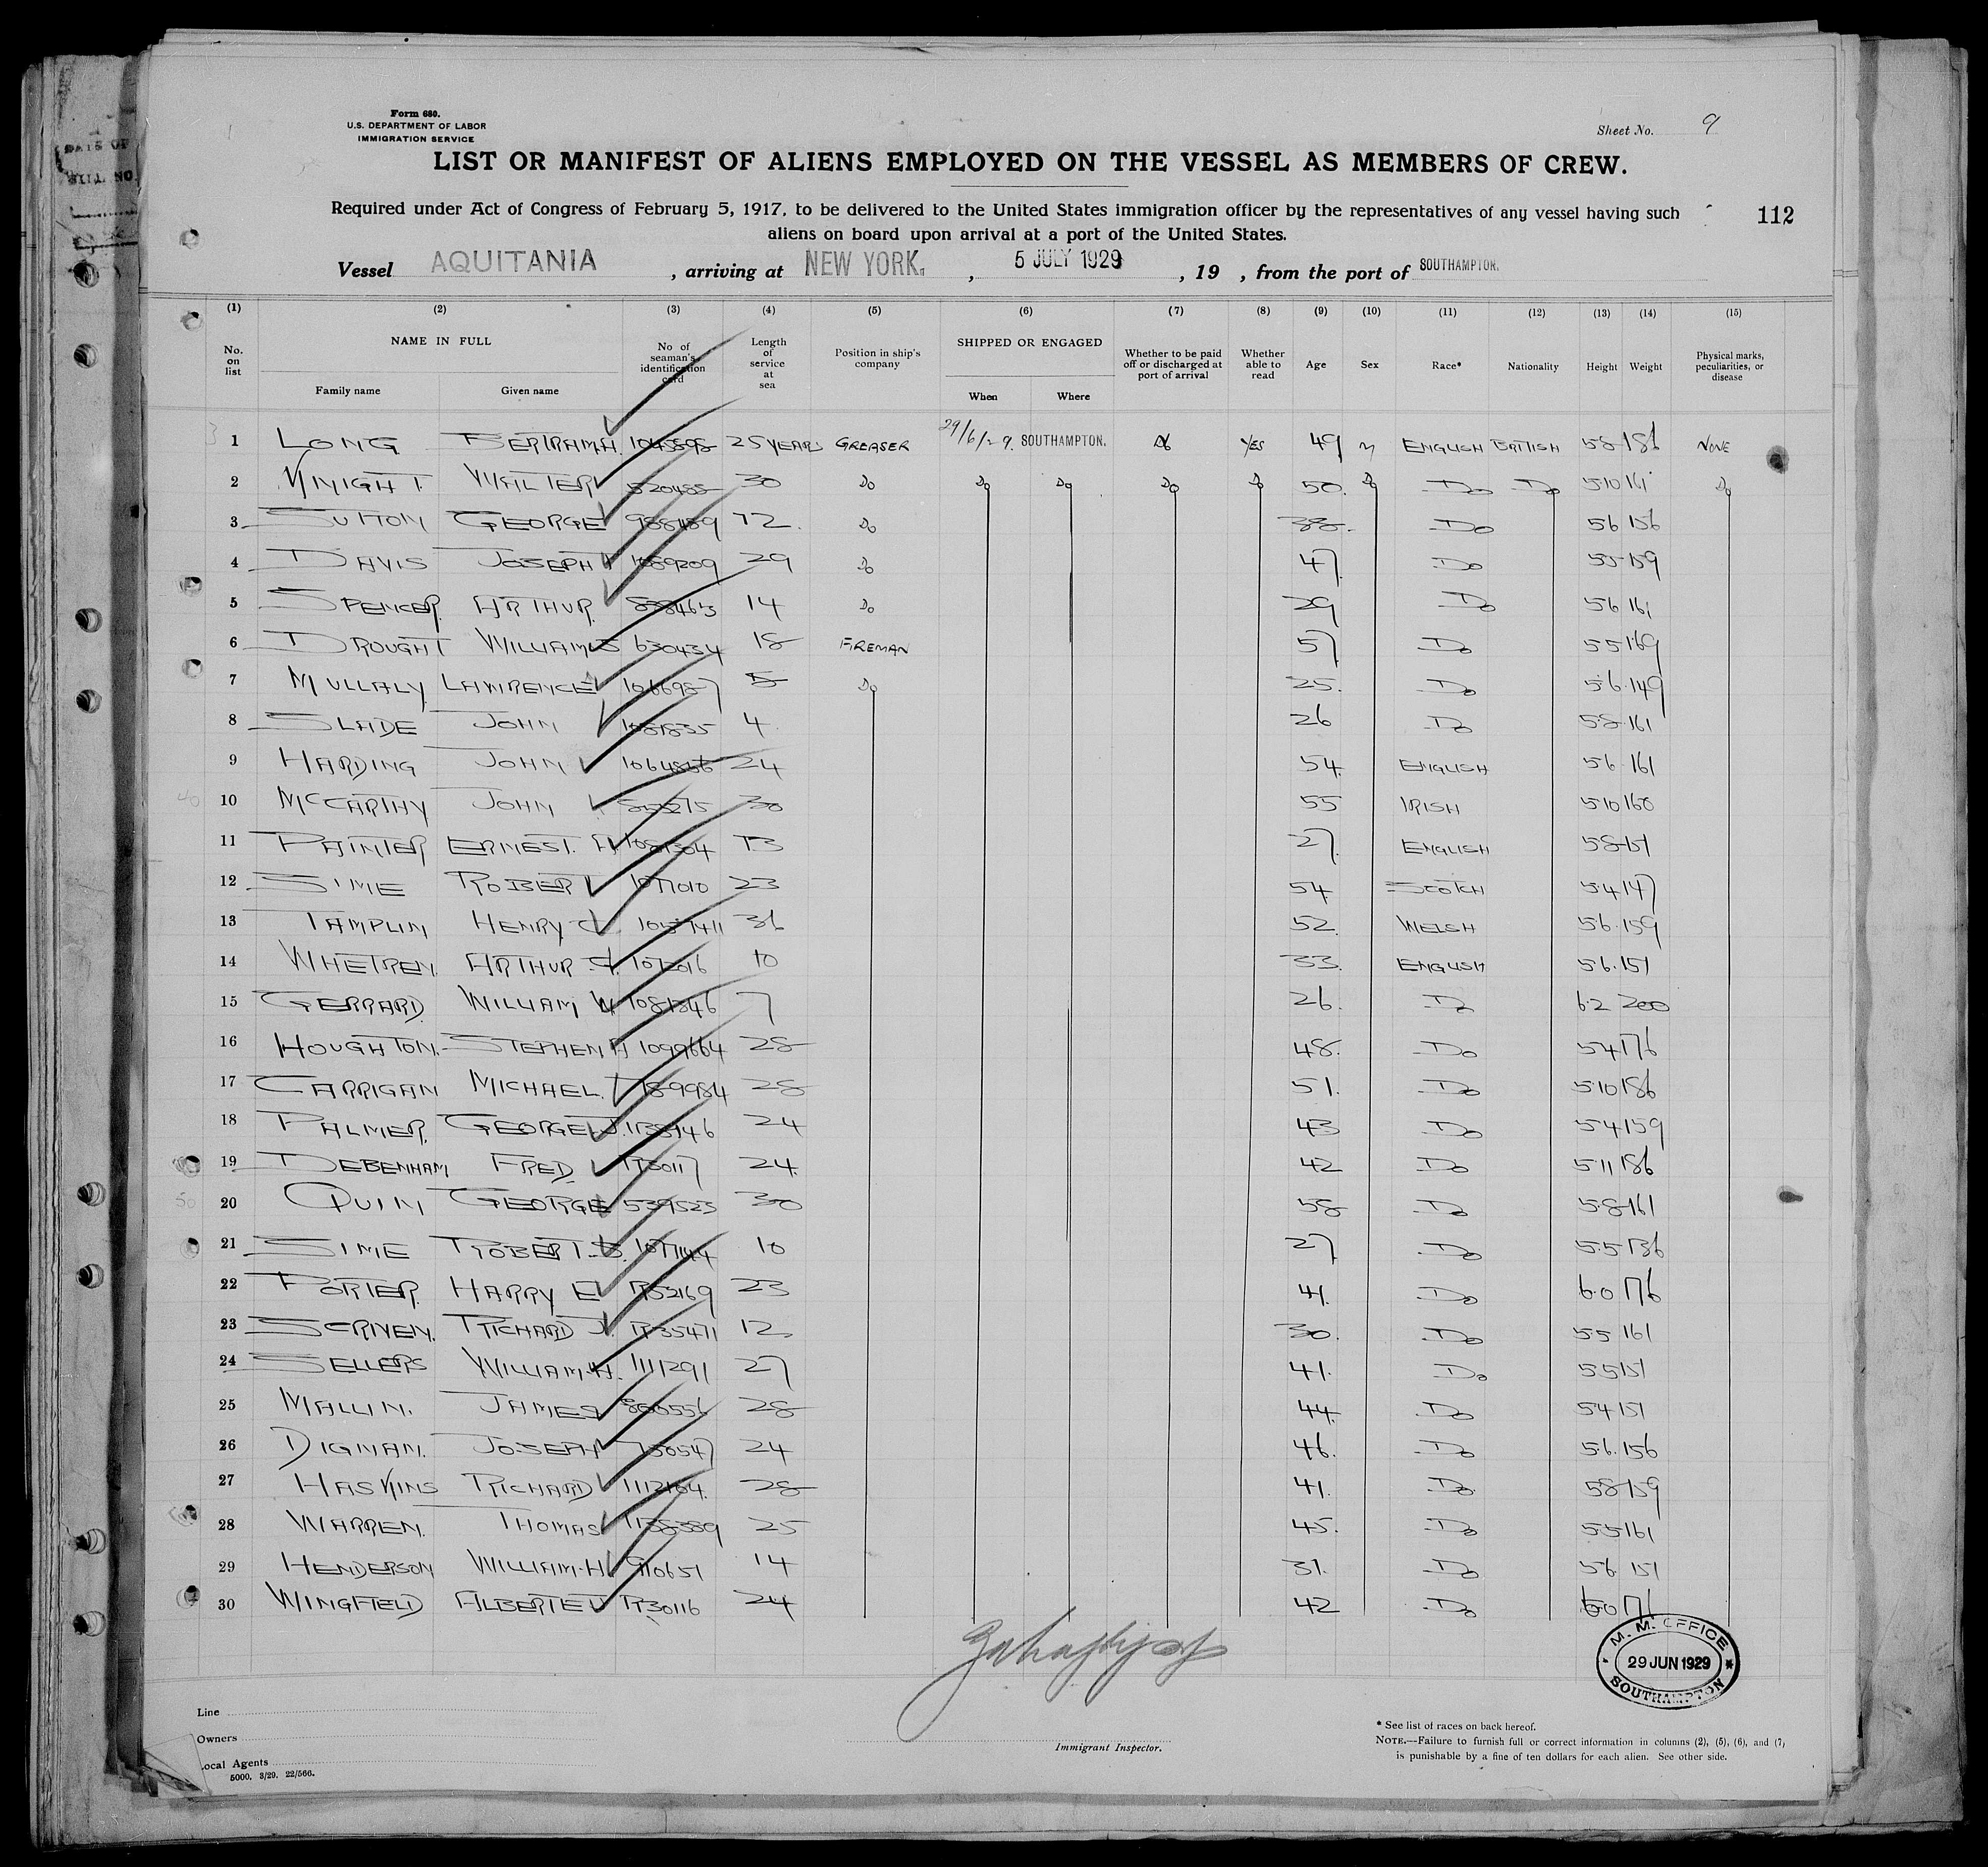 Form 680.
U.S. DEPARTMENT OF LABOR
IMMIGRATION SERVICE
Sheet No. 9
LIST OR MANIFEST OF ALIENS EMPLOYED ON THE VESSEL AS MEMBERS OF CREW.
Required under Act of Congress of February 5, 1917, to be delivered to the United States immigration officer by the representatives of any vessel having such
aliens on board upon arrival at a port of the United States.
112
Vessel AQUITANIA, arriving at NEW YORK, 5 JULY 1929, 19 , from the port of SOUTHAMPTON.
(1) (2) (3) (4) (5) (6) (7) (8) (9) (10) (11) (12) (13) (14) (15)
No. on list NAME IN FULL Family name Given name No of seaman's identification card Length of service at sea Position in ship's company SHIPPED OR ENGAGED When Where Whether to be paid off or discharged at port of arrival Whether able to read Age Sex Race* Nationality Height Weight Physical marks, peculiarities, or disease
1 LONG BERTRAM.H. 25 YEARS GREASER 29/6/29. SOUTHAMPTON. YES 49 M ENGLISH BRITISH 58 186 NONE
2 KNIGHT WALTER 520485 30 Do Do Do Do Do 50. Do Do Do 510 161 Do
3 SUTTON GEORGE 988489 12. Do 38. Do 56 156
4 DAVIS JOSEPH 1089209 29 Do 47. Do 55 159
5 SPENCER. ARTHUR. 838463 14 Do 29 Do 56 161
6 DROUGHT WILLIAM S 630434 18 FIREMAN 57 Do 55 169
7 MULLALY LAWRENCE 1066987 5 Do 25. Do 5.6. 149
8 SLADE JOHN 1081835 4 26 Do 5.8. 161
9 HARDING JOHN 24 54. ENGLISH 5.6 161
10 McCARTHY JOHN 30 55 IRISH 510 160
11 PAINTER ERNEST. A. 13 27. ENGLISH 58 151
12 SIME ROBERT 1077010 23 54 SCOTCH 5.4 147
13 TAMPLIN HENRY C 36 52. WELSH 5.6. 159
14 WHETREN. ARTHUR 10 33. ENGLISH 5.6. 151
15 GERRARD. WILLIAM W 1081346 7 26. Do 6.2 200
16 HOUGHTON. STEPHEN A 1099664 28 48. Do 54 176
17 CARRIGAN MICHAEL. 789984 28 51. Do 510 186
18 PALMER. GEORGE J. 24 43 Do 54 159
19 DEBENHAM FRED R30117 24. 42 Do 511 186
20 QUIN GEORGE 539523 30 58 Do 5.8 161
21 SIME ROBERT. 1077144 10 27 Do 5.5 136
22 PORTER. HARRY E R52169 23 41. Do 6.0 176
23 SCRIVEN. RICHARD J. R35471 12 30. Do 5.5 161
24 SELLERS WILLIAM.H. 1111291 27 41. Do 5.5 151
25 MALLIN. JAMES 28 44. Do 54 151
26 DIGNAM. JOSEPH 24 46. Do 5.6. 156
27 HASKINS RICHARD 1112164. 28 41. Do 58 159
28 WARREN. THOMAS R38389 25 45. Do 5.5 161
29 HENDERSON WILLIAM.H. 910651 14 31. Do 56 151
30 WINGFIELD ALBERT E J R30116 24 42 Do 6.0 171
M. M. OFFICE
29 JUN 1929
SOUTHAMPTON
Line
Owners
Local Agents
5000. 3/29. 22/566.
Immigrant Inspector.
* See list of races on back hereof.
NOTE.—Failure to furnish full or correct information in columns (2), (5), (6), and (7)
is punishable by a fine of ten dollars for each alien. See other side.